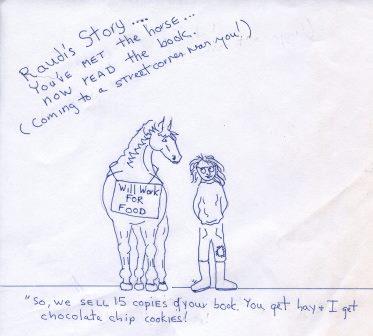 Raudi's Story....
You've MET the horse...
now READ the book.
(Coming to a street corner near you!)
Will Work
FOR
FOOD
"So, we SELL 15 copies of your book. You get hay & I get
chocolate chip cookies!